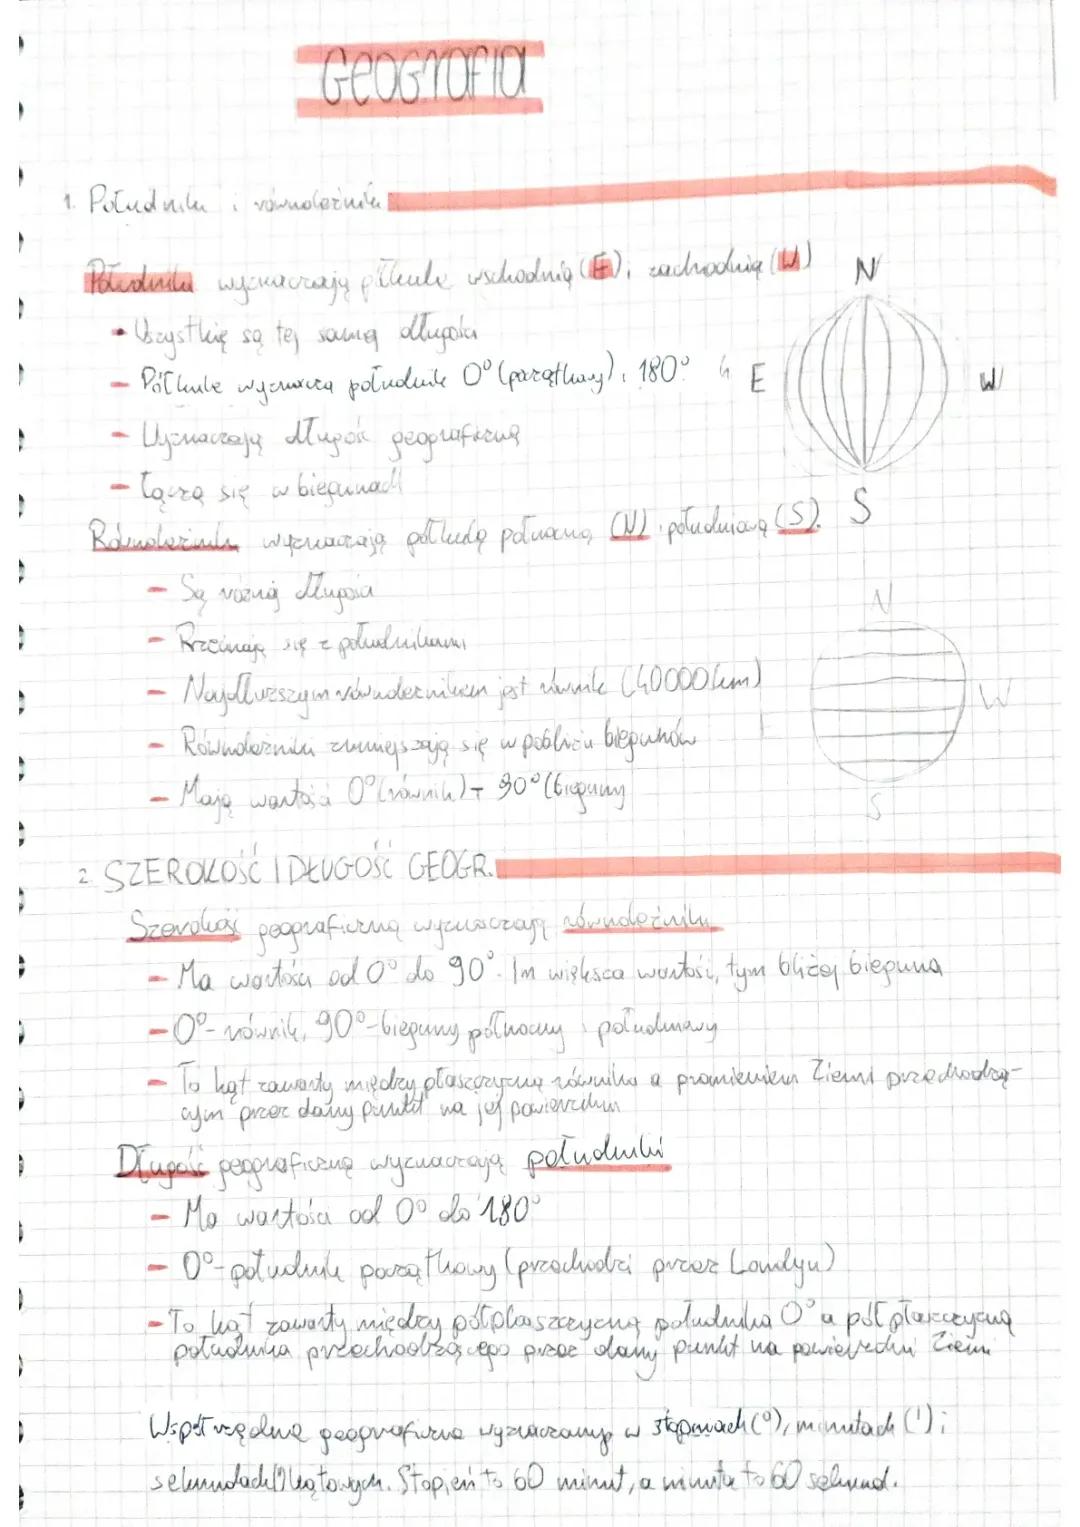 GEOGRAFIA
1. Południki i równoleżniki
Południki wyznaczają półkule wschodnią (E) i zachodnią (W)
N
- Wszystkie są tej samej długości
- Półkule wyznacza południk 0° (początkowy) i 180°
E
W
- Wyznaczają długość geograficzną
- Łączą się w biegunach
S
Równoleżniki wyznaczają półkulę północną (N) i południową (S).
- Są różnej długości
N
- Przecinają się z południkami
- Najdłuższym równoleżnikiem jest równik (40000km)
W
- Równoleżniki zmniejszają się w pobliżu biegunów
- Mają wartości 0° (równik) - 90° (bieguny
S
2. SZEROKOŚĆ I DŁUGOŚĆ GEOGR.
Szerokość geograficzną wyznaczają równoleżniki
- Ma wartości od 0° do 90°. Im większa wartość, tym bliżej bieguna
- 0° - równik, 90° - bieguny północny i południowy
- To kąt zawarty między płaszczyzną równika a promieniem Ziemi przechodzą-
cym przez dany punkt na jej powierzchni
Długość geograficzną wyznaczają południki
- Ma wartości od 0° do 180°
- 0° - południk początkowy (przechodzi przez Londyn)
- To kąt zawarty między półpłaszczyzną południka 0° a półpłaszczyzną
południka przechodzącego przez dany punkt na powierzchni Ziemi
Współrzędne geograficzne wyznaczamy w stopniach (°), minutach (') i
sekundach (") kątowych. Stopień to 60 minut, a minuta to 60 sekund.